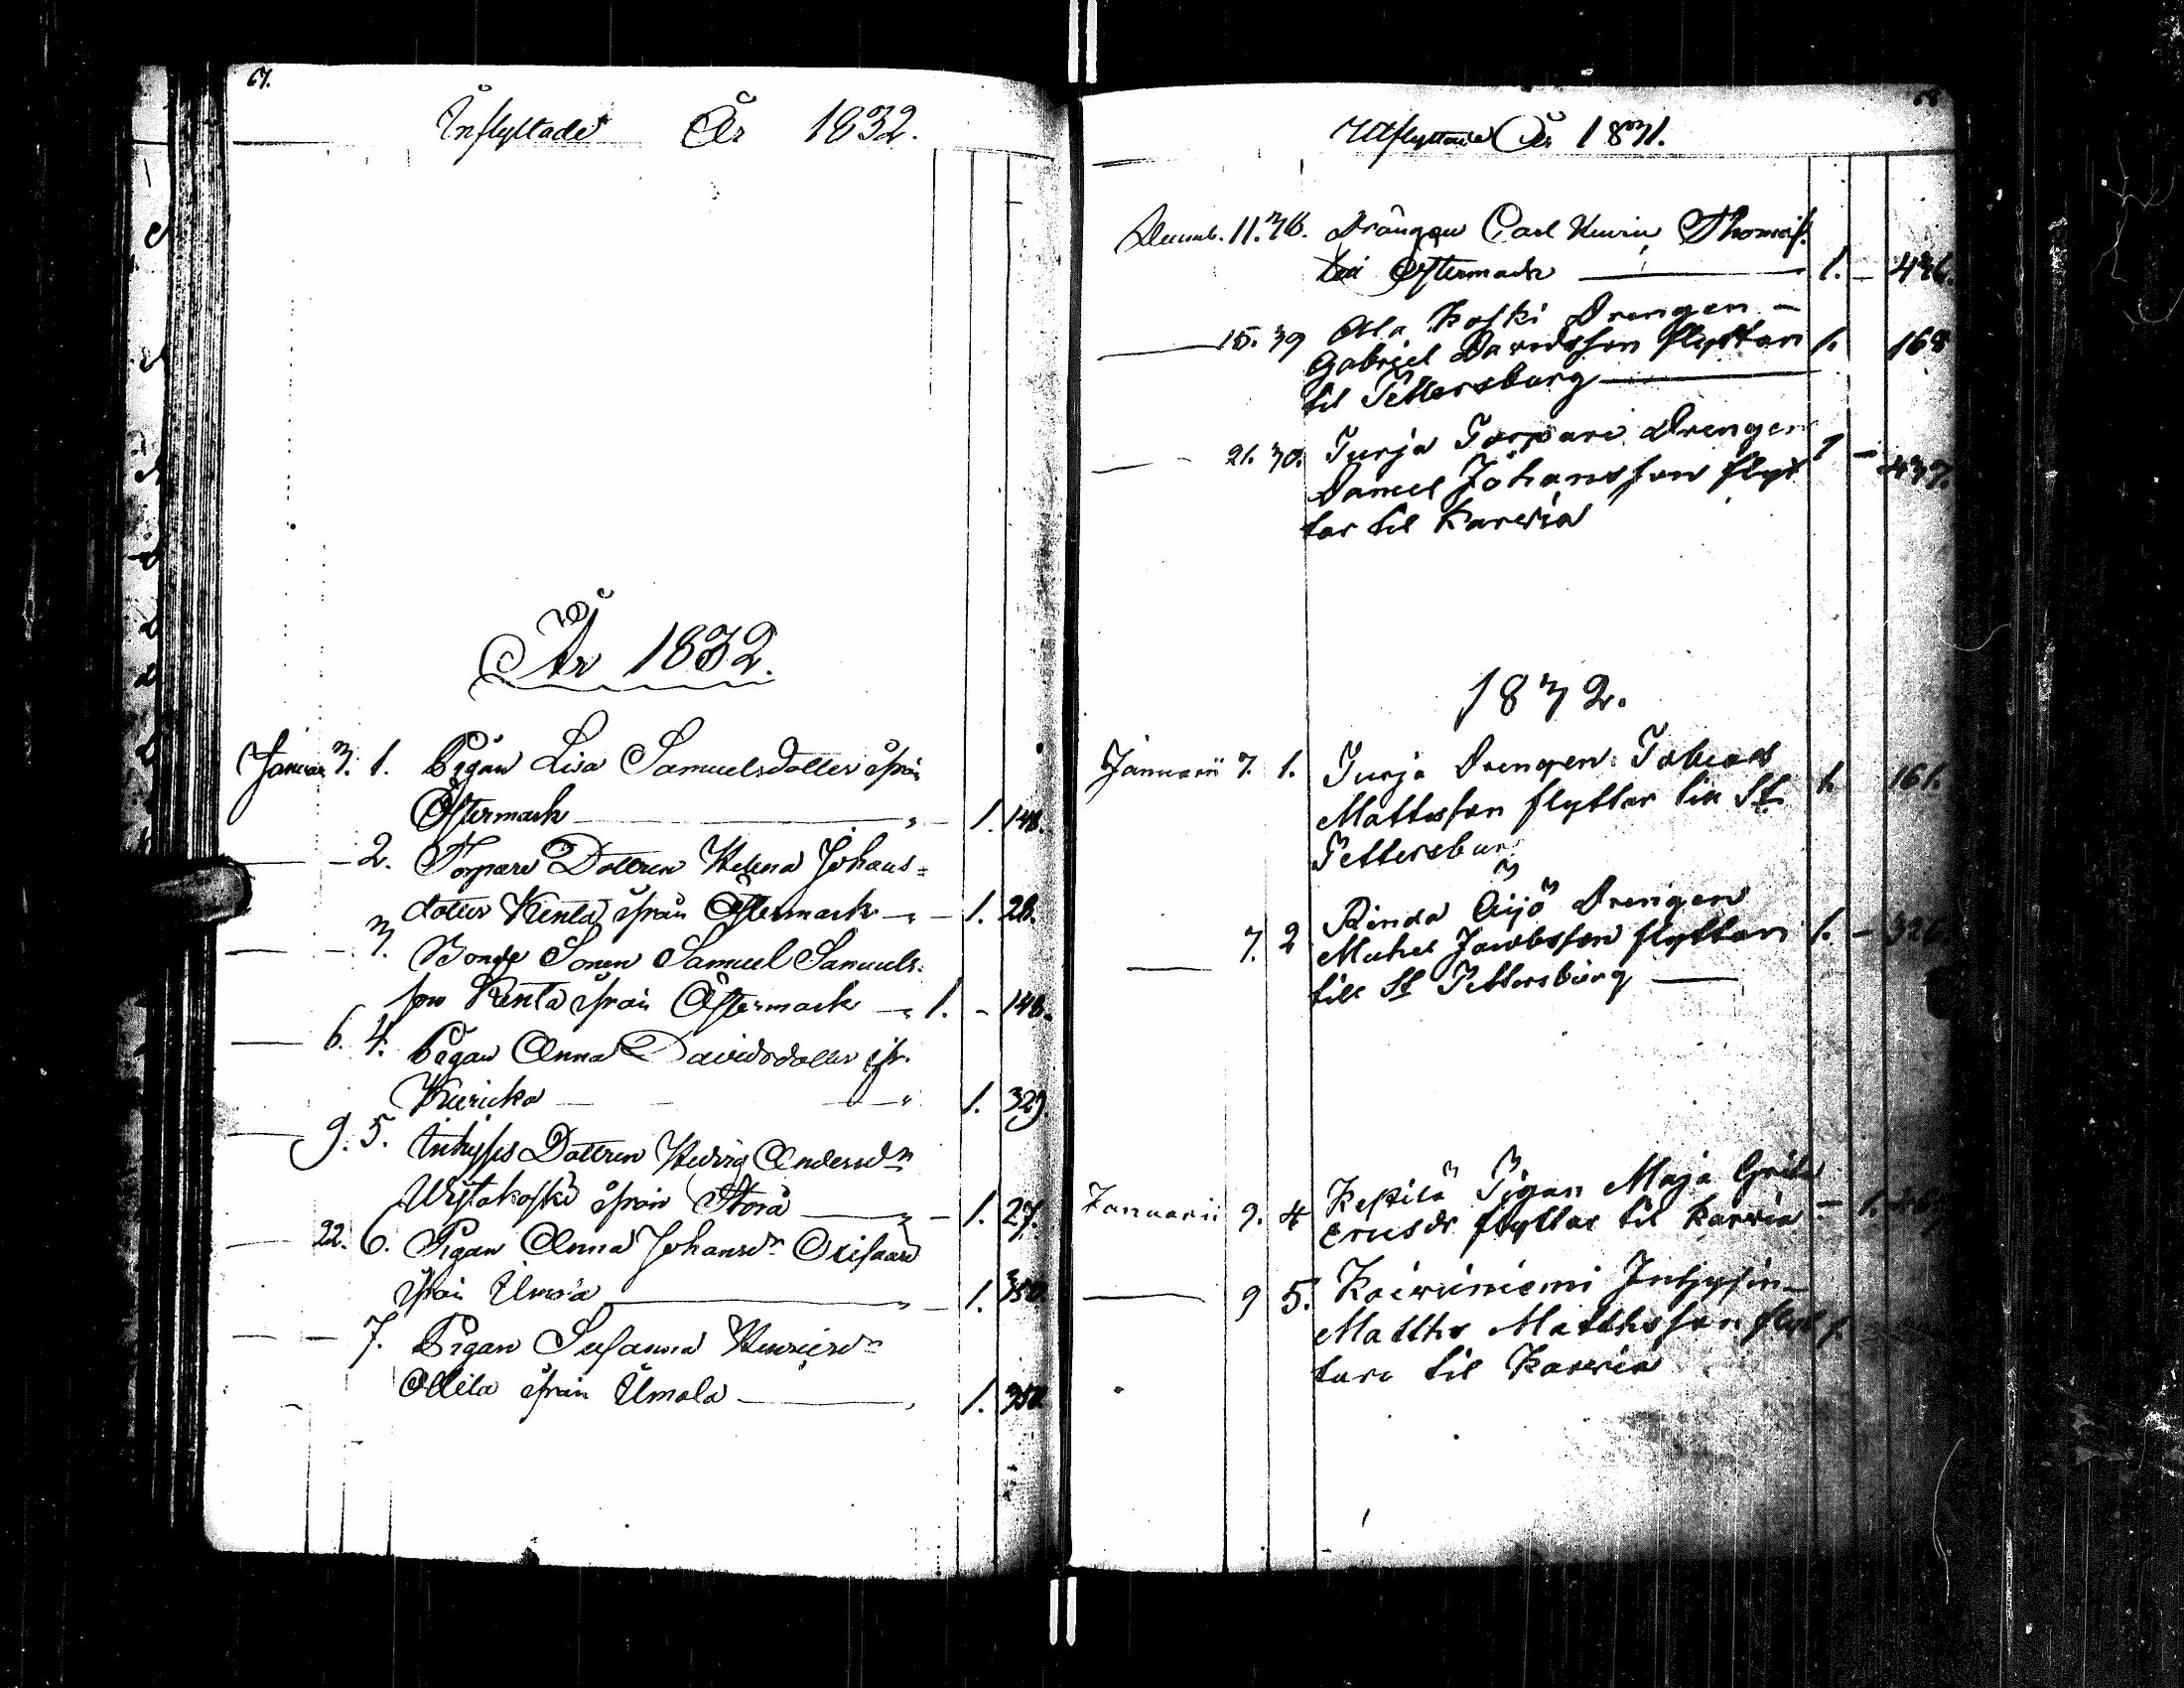 67.
Inflyttade År 1832.
År 1832.
Januar 3. 1. Pigan Lisa Samuelsdotter ifrån
Östermark 1. 148.
2. Torpare Dottren Helena Johans=
dotter Kenta ifrån Östermark 1. 28.
3. Bonde Sonen Samuel Samuels=
son Renta ifrån Östermark 1. 148.
6. 4. Pigan Anna Davidsdotter ifr.
Kuricka 1. 329
9. 5. Inhyses Dottren Hedvig Andersdr
Wistakoski ifrån Storå 1. 27.
22. 6. Pigan Anna Johansdr Orisaari
ifrån Umola 1. 350.
7. Pigan Susanna Henricsdr
Ollila ifrån Umola 1. 350.
68
Utflyttade År 1831.
Decemb. 11. 38. Drängen Carl Henric Thomass.
till Östermark 1. 436.
15. 39 Ala Koski Drengen
Gabriel Davidsson flyttar 1. 168
til Pettersburg
21. 30. Turja Torpare Drengen 1
Daniel Johansson flyt 437.
tar til Karvia
1832.
Januarii 7. 1. Turja Drengen Tobias 1. 161.
Mattsson flyttar till St.
Pettersburg
7. 2 Rinda Äijö Drengen
Michel Jacobsson flyttar 1. 326
till St Pettersburg
Januarii 9. 4 Keskilä Pigan Maja Greta
Ericsdr flyttar til Karvia 1.
9 5. Koivuniemi Inhysin
Matths Matthsson flyt 1.
tare til Karvia